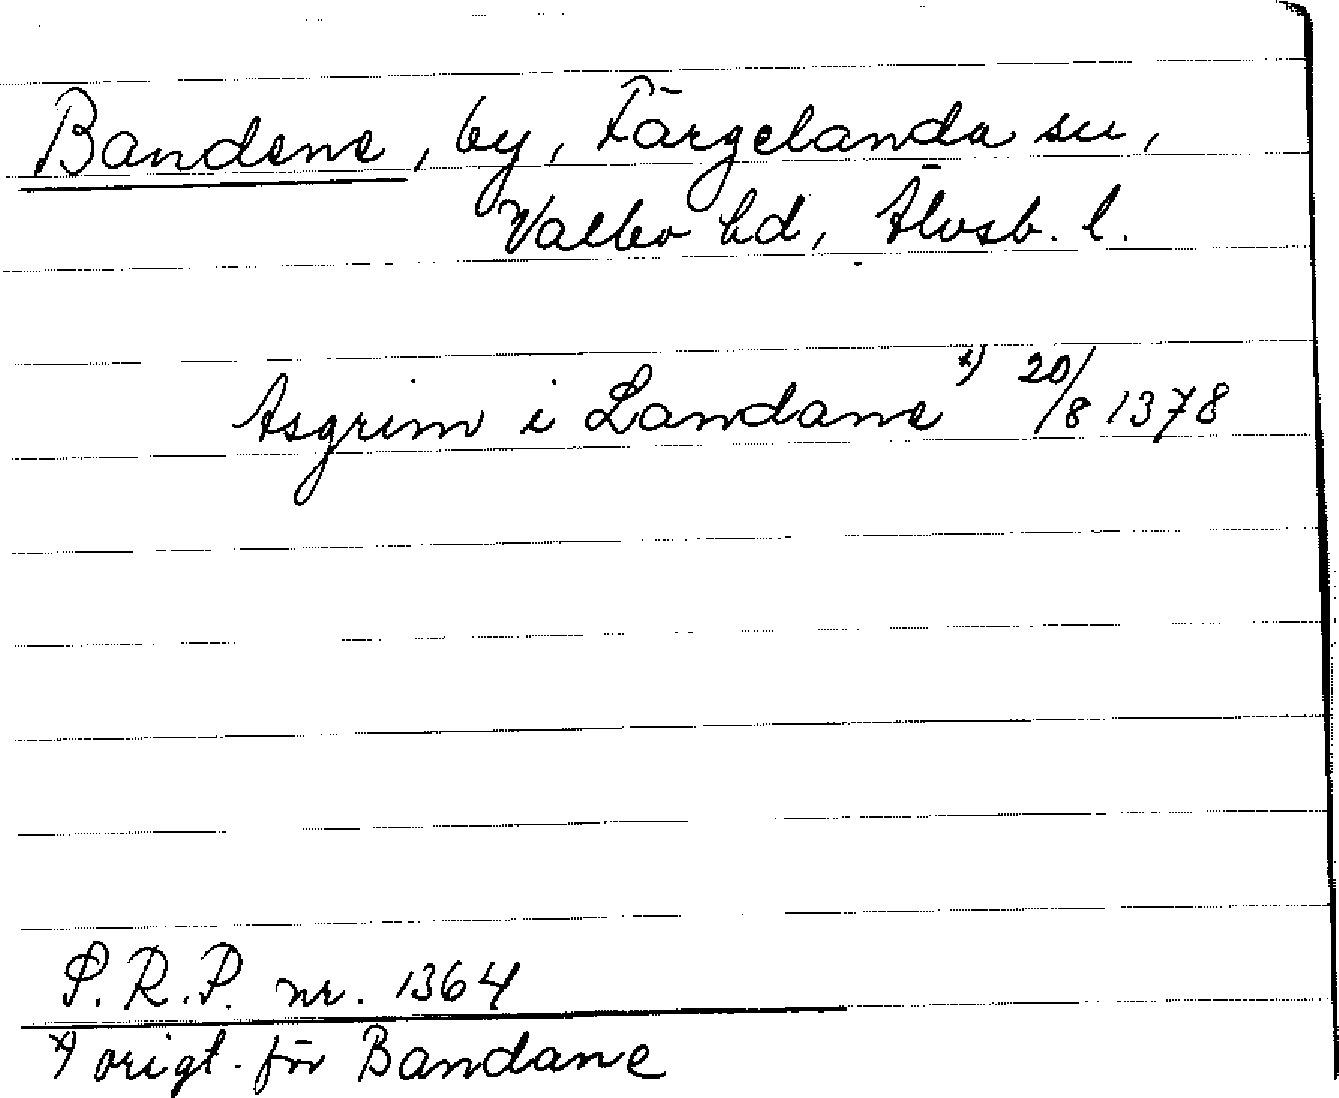 Bandene, by, Färgelanda sn,
Valbo hd, Älvsb. l.
Asgrim i Landane x) 20/8 1378
S.R.P. nr. 1364
x) origt. för Bandane